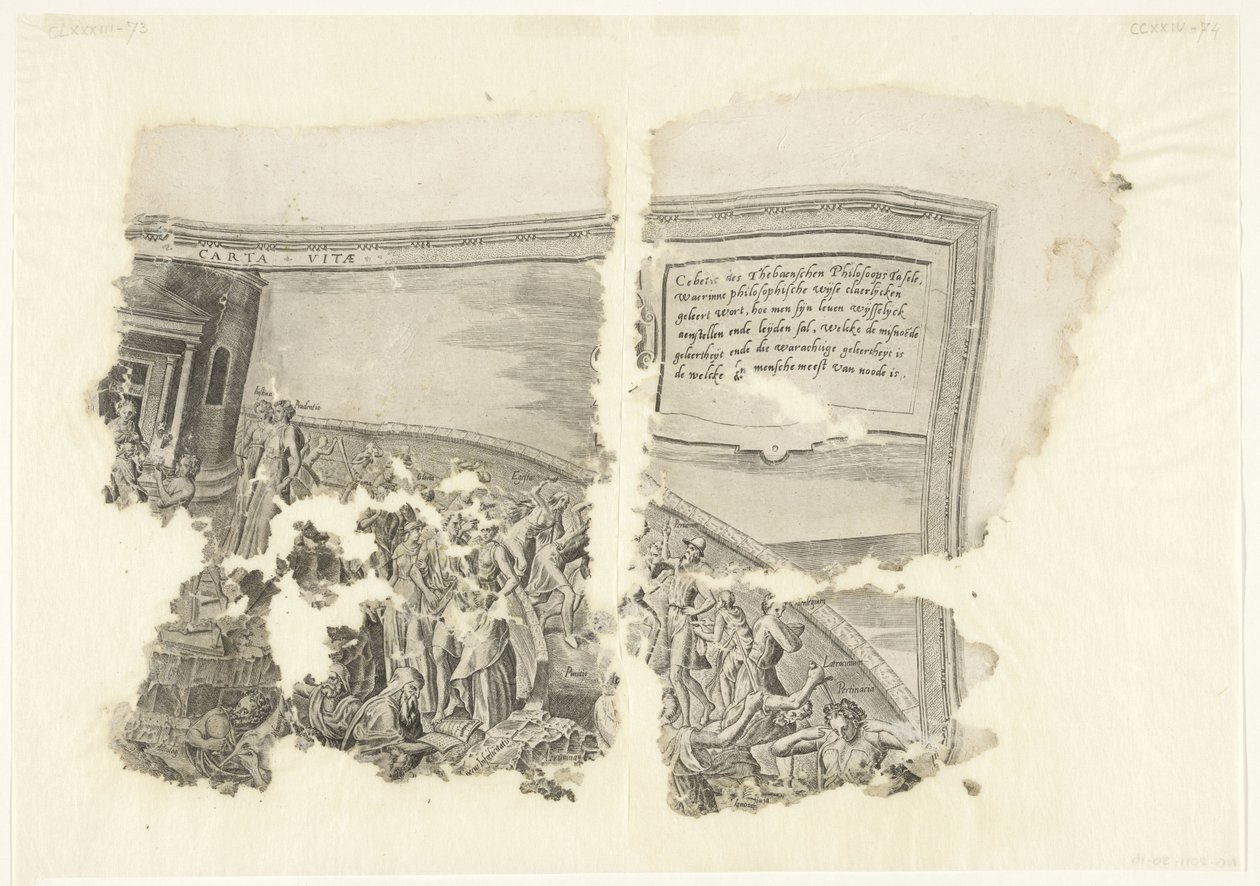 CLXXXIII-73
CCXXIV-74
CARTA VITÆ
Cebetis des Thebaenschen Philosoops Tafele,
Waerinne philosophische wyse claerlycken
geleert wort, hoe men syn leven wysselyck
aenstellen ende leyden sal, Welcke de misnoerde
geleertheyt ende die warachtige geleertheyt is
de welcke mensche meest van noode is.
Prudentia
Egestas
Latrocinium
Pertinacia
Punitio
Aerumna
NG-2011-30-1b